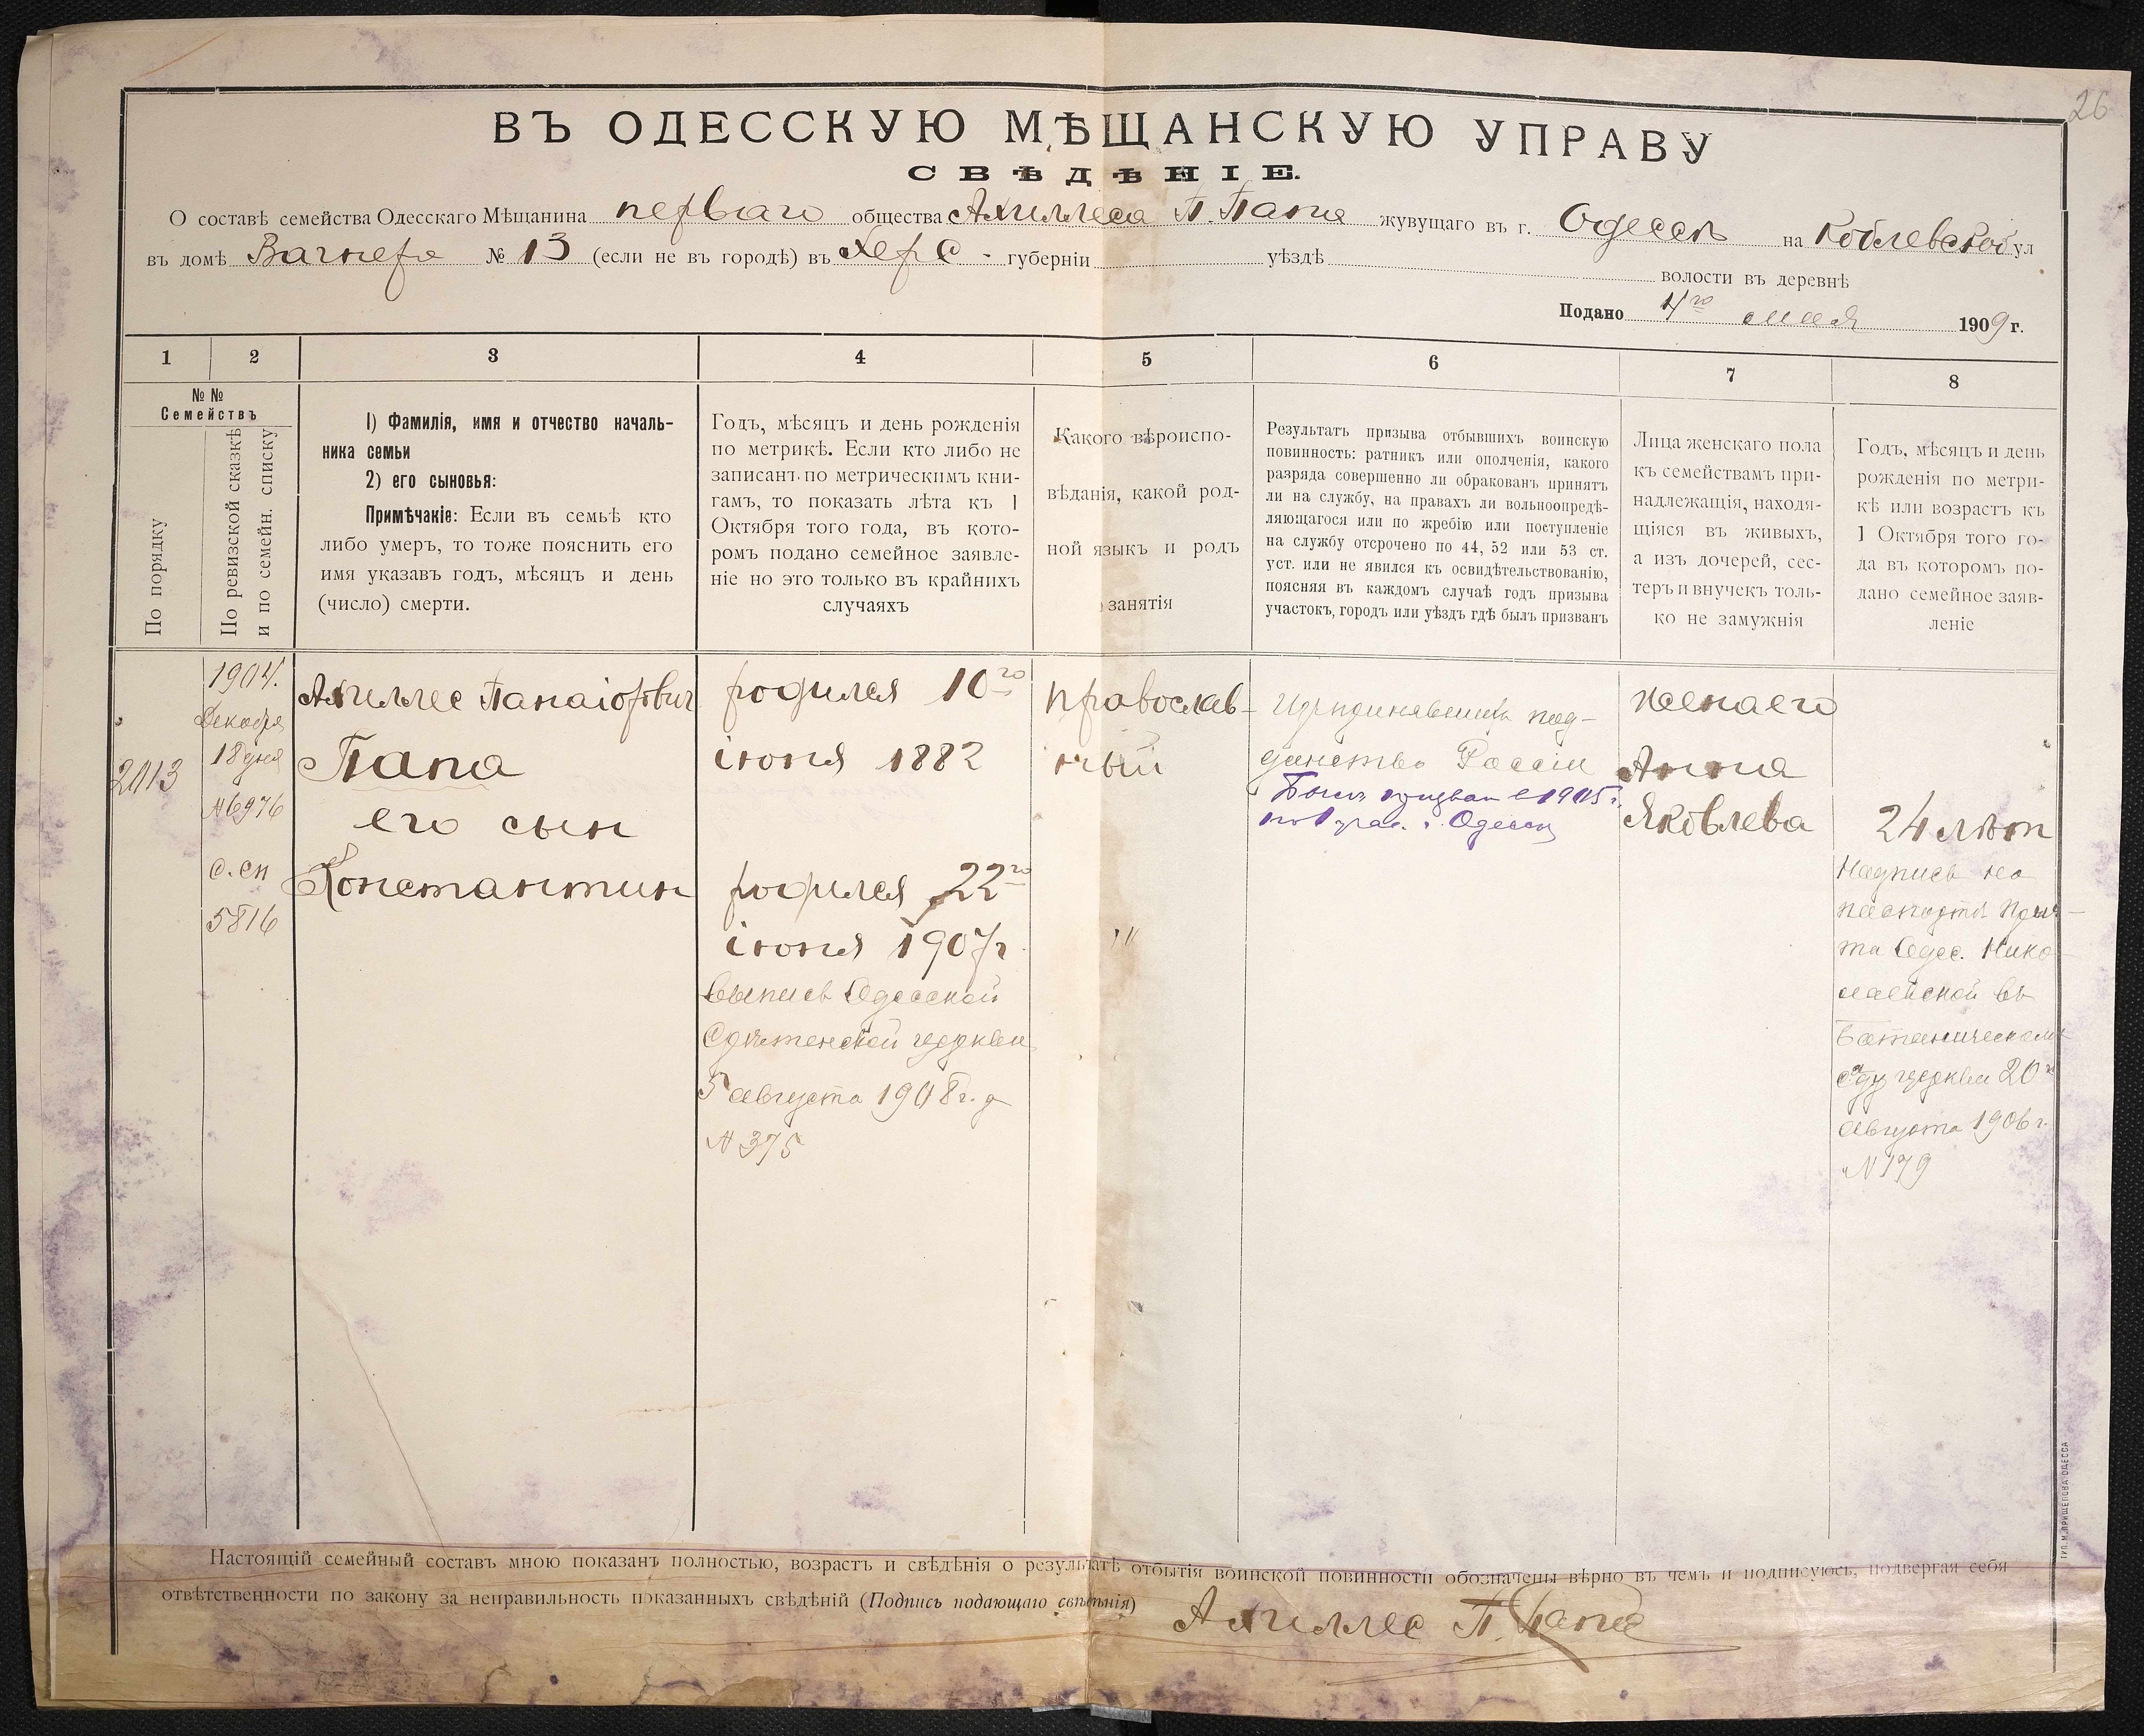 26
ВЪ ОДЕССКУЮ МѢЩАНСКУЮ УПРАВУ
СВѢДѢНІЕ.
О составѣ семейства Одесскаго Мѣщанина перваго общества Ахиллеса П. Папа жувущаго въ г. Одессѣ на Коблевской ул
въ домѣ Вагнера № 13 (если не въ городѣ) въ Херс. губерніи уѣздѣ волости въ деревнѣ
Подано 4го 1909 г.
1 2 3 4 5 6 7 8
№№
Семействъ
По порядку
По ревизской сказкѣ
и по семейн. списку
1) Фамилія, имя и отчество началь-
ника семьи
2) его сыновья:
Примѣчакіе: Если въ семьѣ кто
либо умеръ, то тоже пояснить его
имя указавъ годъ, мѣсяцъ и день
(число) смерти.
Годъ, мѣсяцъ и день рожденія
по метрикѣ. Если кто либо не
записанъ по метрическимъ кни-
гамъ, то показать лѣта къ 1
Октября того года, въ кото-
ромъ подано семейное заявле-
ніе но это только въ крайнихъ
случаяхъ
Какого вѣроиспо-
вѣданія, какой род-
ной языкъ и родъ
занятія
Результатъ призыва отбывшихъ воинскую
повинность: ратникъ или ополченія, какого
разряда совершенно ли обракованъ принятъ
ли на службу, на правахъ ли вольноопредѣ-
ляющагося или по жребію или поступленіе
на службу отсрочено по 44, 52 или 53 ст.
уст. или не явился къ освидѣтельствованію,
поясняя въ каждомъ случаѣ годъ призыва
участокъ, городъ или уѣздъ гдѣ былъ призванъ
Лица женскаго пола
къ семействамъ при-
надлежащія, находя-
щіяся въ живыхъ,
а изъ дочерей, сес-
теръ и внучекъ толь-
ко не замужнія
Годъ, мѣсяцъ и день
рожденія по метри-
кѣ или возрастъ къ
1 Октября того го-
да въ которомъ по-
дано семейное заяв-
леніе
2013
1904.
Декабря
18 дня
№ 6976
с. сп
5816
Ахиллес Панаіотович
Папа
его сын
Константин
родился 10го
іюня 1882
родился 22го
іюня 1907 г
выпись Одесской
Срѣтенской церкви
5 августа 1908 г.
№ 375
православ-
ный
"
под-
данство Россіи
Былъ призван в 1905 г.
по 1 учас. г. Одессы
жена его
Анна
Яковлева
24 лѣт
Надпись на
паспортѣ прич-
та Одес. Нико-
лаевской въ
Ботаническомъ
саду церкви 20го
августа 1906 г.
№ 179
Настоящій семейный составъ мною показанъ полностью, возрастъ и свѣдѣнія о результатѣ отбытія воинской повинности обозначены вѣрно въ чемъ и подписуюсь, подвергая себя
отвѣтственности по закону за неправильность показанныхъ свѣдѣній (Подпись подающаго свѣдѣнія) Ахиллес П. Папа
ТИП. М. ПРИЩЕПОВА ОДЕССА